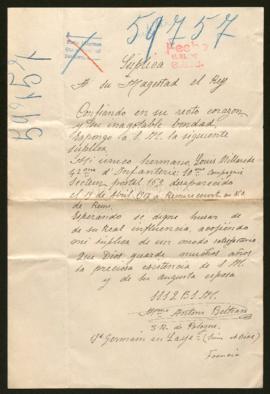 59757
Fecha
Súplica
A su Magestad el Rey
Confiando en su recto corazon
y su inagotable bondad
expongo a S. M. la siguiente
súplica
Mi único hermano, Louis
42 d'Infanterie 10 compagnie
Secteur postal 169 desaparecido
el 19 de Abril 1918 a
de Reims.
Esperando se digne husar de
de su Real influencia, acojiendo
mi súplica de un modo satisfactorio
Que Dios guarde muchos años
la preciosa existencia de S. M.
y de su augusta esposa
S. R. de Pologne
St Germain en Laye (Seine et Oise)
Francia